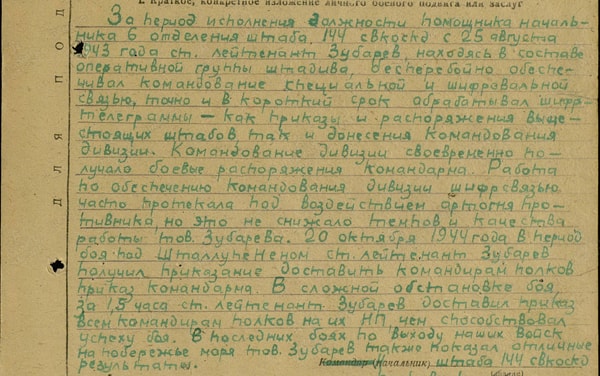 I. Краткое, конкретное изложение личного боевого подвига или заслуг
За период исполнения должности помощника началь-
ника 6 отделения штаба 144 свкоскд с 25 августа
1943 года ст. лейтенант Зубарев, находясь в составе
оперативной группы штадива, бесперебойно обеспе-
чивал командование специальной и шифровальной
связью, точно и в короткий срок обрабатывал шифр-
телеграммы — как приказы и распоряжения выше-
стоящих штабов так и донесения командования
дивизии. Командование дивизии своевременно по-
лучало боевые распоряжения командарма. Работа
по обеспечению командования дивизии шифрсвязью
часто протекала под воздействием артогня про-
тивника, но это не снижало темпов и качества
работы тов. Зубарева. 20 октября 1944 года в период
боя под Шталлупененом ст. лейтенант Зубарев
получил приказание доставить командирам полков
приказ командарма. В сложной обстановке боя,
за 1,5 часа ст. лейтенант Зубарев доставил приказ
всем командирам полков на их НП, чем способствовал
успеху боя. В последних боях по выходу наших войск
на побережье моря тов. Зубарев также показал отличные
результаты.
Командир (начальник) штаба 144 свкоскд
ДЛЯ ПОД